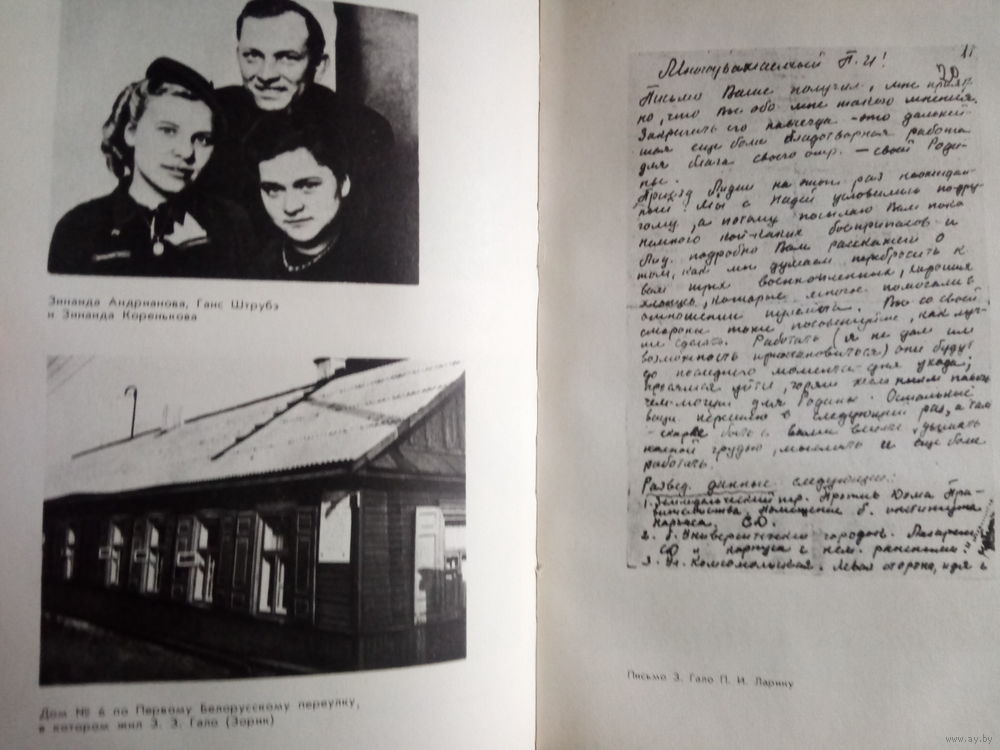 Зинаида Андрианова, Ганс Штрубэ
и Зинаида Коренькова
Дом № 6 по Первому Белорусскому переулку,
в котором жил З. З. Гало (Зорик)
11
Многоуважаемый П.И!
70
Письмо Ваше получил, мне прият-
но, что Вы обо мне такого мнения.
Закрепить его навсегда - это дальней-
шая еще более благотворная работа
для блага своего отр. — своей Роди-
ны.
Приезд Лидии на этот раз неожидан-
ный! Мы с Надей условились по-дру-
гому, а потому посылаю Вам пока
немного кой-каких боеприпасов и
Лид. подробно Вам расскажет о
том, как мы думаем перебросить к
вам трех военнопленных, хороших
хлопцев, которые много помогали в
отношении
Вы со своей
стороны тоже посоветуйте, как луч-
ше сделать. Работать (я не дам им
возможность приостановиться) они будут
до последнего момента-дня ухода;
уйти, горят желанием
для Родины. Остальные
вещи перешлю в следующий раз, а там
- скорее быть с вами вместе, дышать
полной грудью, мыслить и еще более
работать.
Развед. данные следующие:
1. пер. Против Дома Пра-
вительства. Помещение б. института
СД.
2. б. Университетский городок. Лазарет
СД и корпуса с нем. ранеными.
3. Ул. Комсомольская. Левая сторона, идя с
Письмо З. Гало П. И. Ларину
www.ay.by